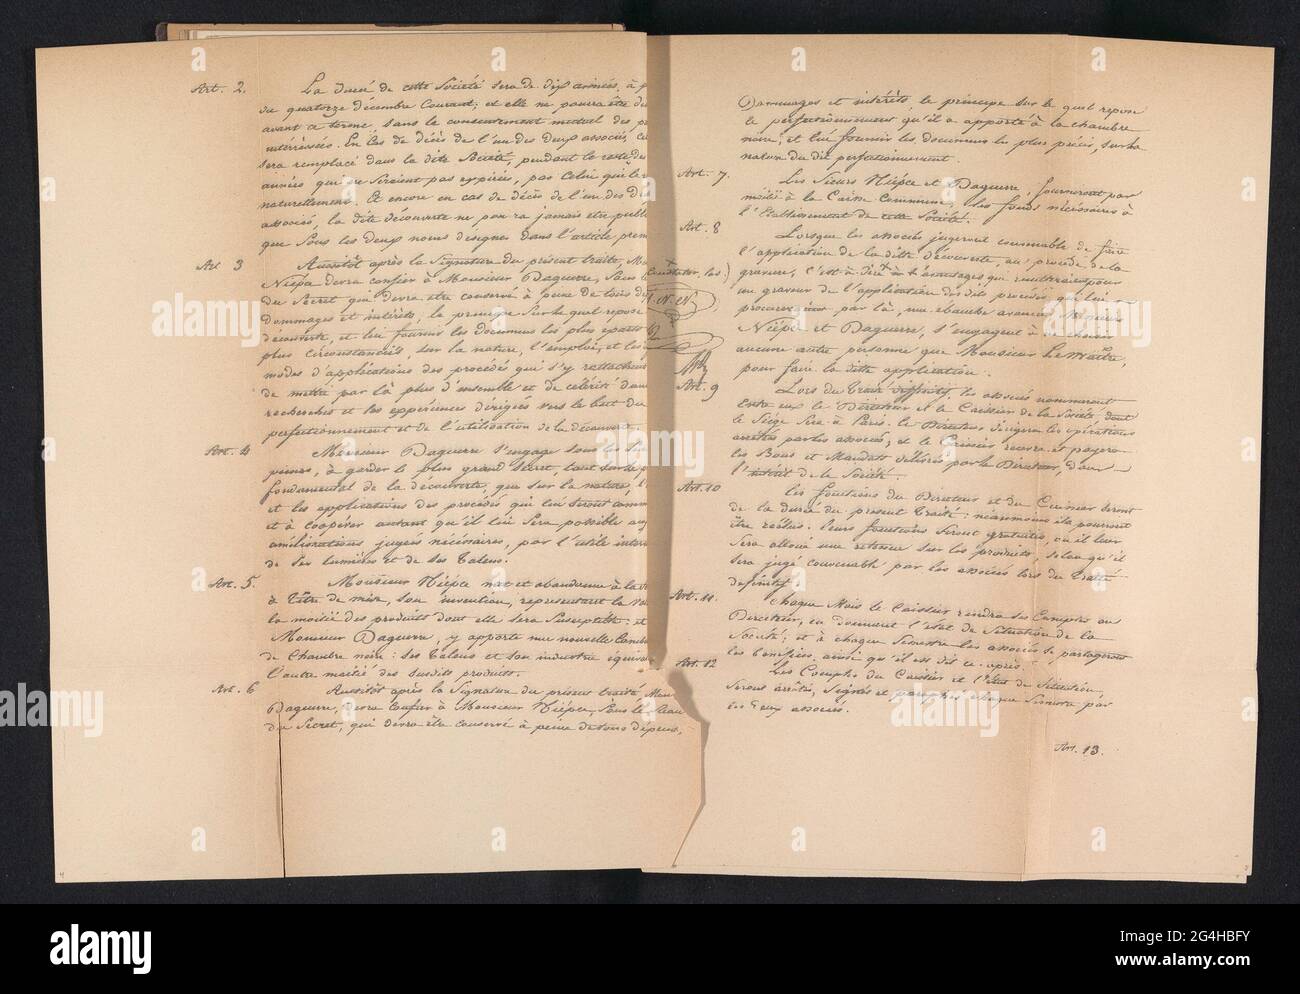 Art. 2. La durée de cette Société sera de dix années, à p
du quatorze décembre Courant; et elle ne pourra être
avant ce terme, sans le consentement mutuel des p
intéréssées. En Cas de décès de l'un des deux associés, ce
sera remplacé dans la dite Société, pendant le reste des
années qui ne seraient pas expirées, pas Celui qui le
naturellement. Et encore en cas de décès de l'un des D
associés, la dite découverte ne pourra jamais etre publ
que Sous les deux noms désignés dans l'article prem
Art 3 Aussitôt après la Signature du présent traité M
Niépce devra confier à Monsieur Daguerre, Sous
du Secret qui devra etre conservé à peine de tous de
dommages et intérêts, le principe Sur le quel repose
découverte, et lui fournir les documens les plus
plus circonstanciés, sur la nature, l'emploi, et les
modes d'applications des procédés qui s'y rattachent
de mettre par là plus d'ensemble et de célérité dans
recherches et les expériences dirigées vers le but du
perfectionnement et de l'utilisation de la découverte.
Art. 4 Monsieur Daguerre s'engage sous les
peines, à garder le plus grand Secret, tant sur le p
fondamental de la découverte, que sur la nature, l'
et les applications des procédés qui lui seront comm
et à coopérer autant qu'il lui Sera possible aux
améliorations jugées nécessaires, par l'utile inter
de Ses lumières et de Ses Talens.
Art. 5. Monsieur Niépce met et abandonne à la
à titre de mise, son invention, représentant la va
la moitié des produits dont elle sera Susceptible: et
Monsieur Daguerre, y apporte une nouvelle Comb
de Chambre noire: ses Talens et son industrie équiva
l'autre moitié des susdits produits.
Art. 6 Aussitôt après la Signature du présent traité, Mon
Daguerre, devra Confier à Monsieur Niépce, Sous le Sceau
du Secret, qui devra être conservé à peine de tous dépens,
Dommages et intérêts, le principe sur le quel repose
le perfectionnement qu'il a apporté à la chambre
noire, et lui fournir les documens les plus précis, sur la
nature du dit perfectionnement.
Art. 7. Les Sieurs Niépce et Daguerre, fourniront par
moitié à la Caisse Commune, les fonds nécessaires à
l'Etablissement de cette Société.
Art. 8 Lorsque les associés jugeront convenable de faire
l'application de la dite découverte, au procédé de la
gravure, c'est à dire de constater, les avantages qui résulteraient pour
un graveur de l'application des dits procédés, qui lui
procureraient par là, une ébauche avancée, Messieurs
Niépce et Daguerre, s'engagent à ne choisir
aucune autre personne que Monsieur Lemaître,
pour faire la dite application.
J. N. N.
Art. 9 Lors du Traité définitif, les associés nommeront
Entre eux le Directeur et le Caissier de la Société dont
le Siége Sera à Paris. Le Directeur dirigera les opérations
arrêtées par les associés, et le Caissier recevra et payera
les Bons et Mandats délivrés par le Directeur, dans
l'intérêt de la Société.
Art. 10 Les fonctions du Directeur et du Caissier seront
de la durée du présent Traité: néanmoins ils pourront
être réélus. leurs fonctions Seront gratuites, ou il leur
Sera alloué une retenue sur les produits, selon qu'il
sera jugé convenable par les associés lors du Traité
définitif.
Art. 11. Chaque Mois le Caissier rendra ses Comptes au
Directeur, en donnant l'état de Situation de la
Société; et à chaque Semestre les associés se partageront
les bénéfices, ainsi qu'il est dit ci-après.
Art. 12 Les Comptes du Caissier et l'état de Situation,
Seront arrêtés, Signés et paraphés chaque Semestre par
les deux associés.
Art. 13.
alamy
Image ID: 2G4HBFY
www.alamy.com